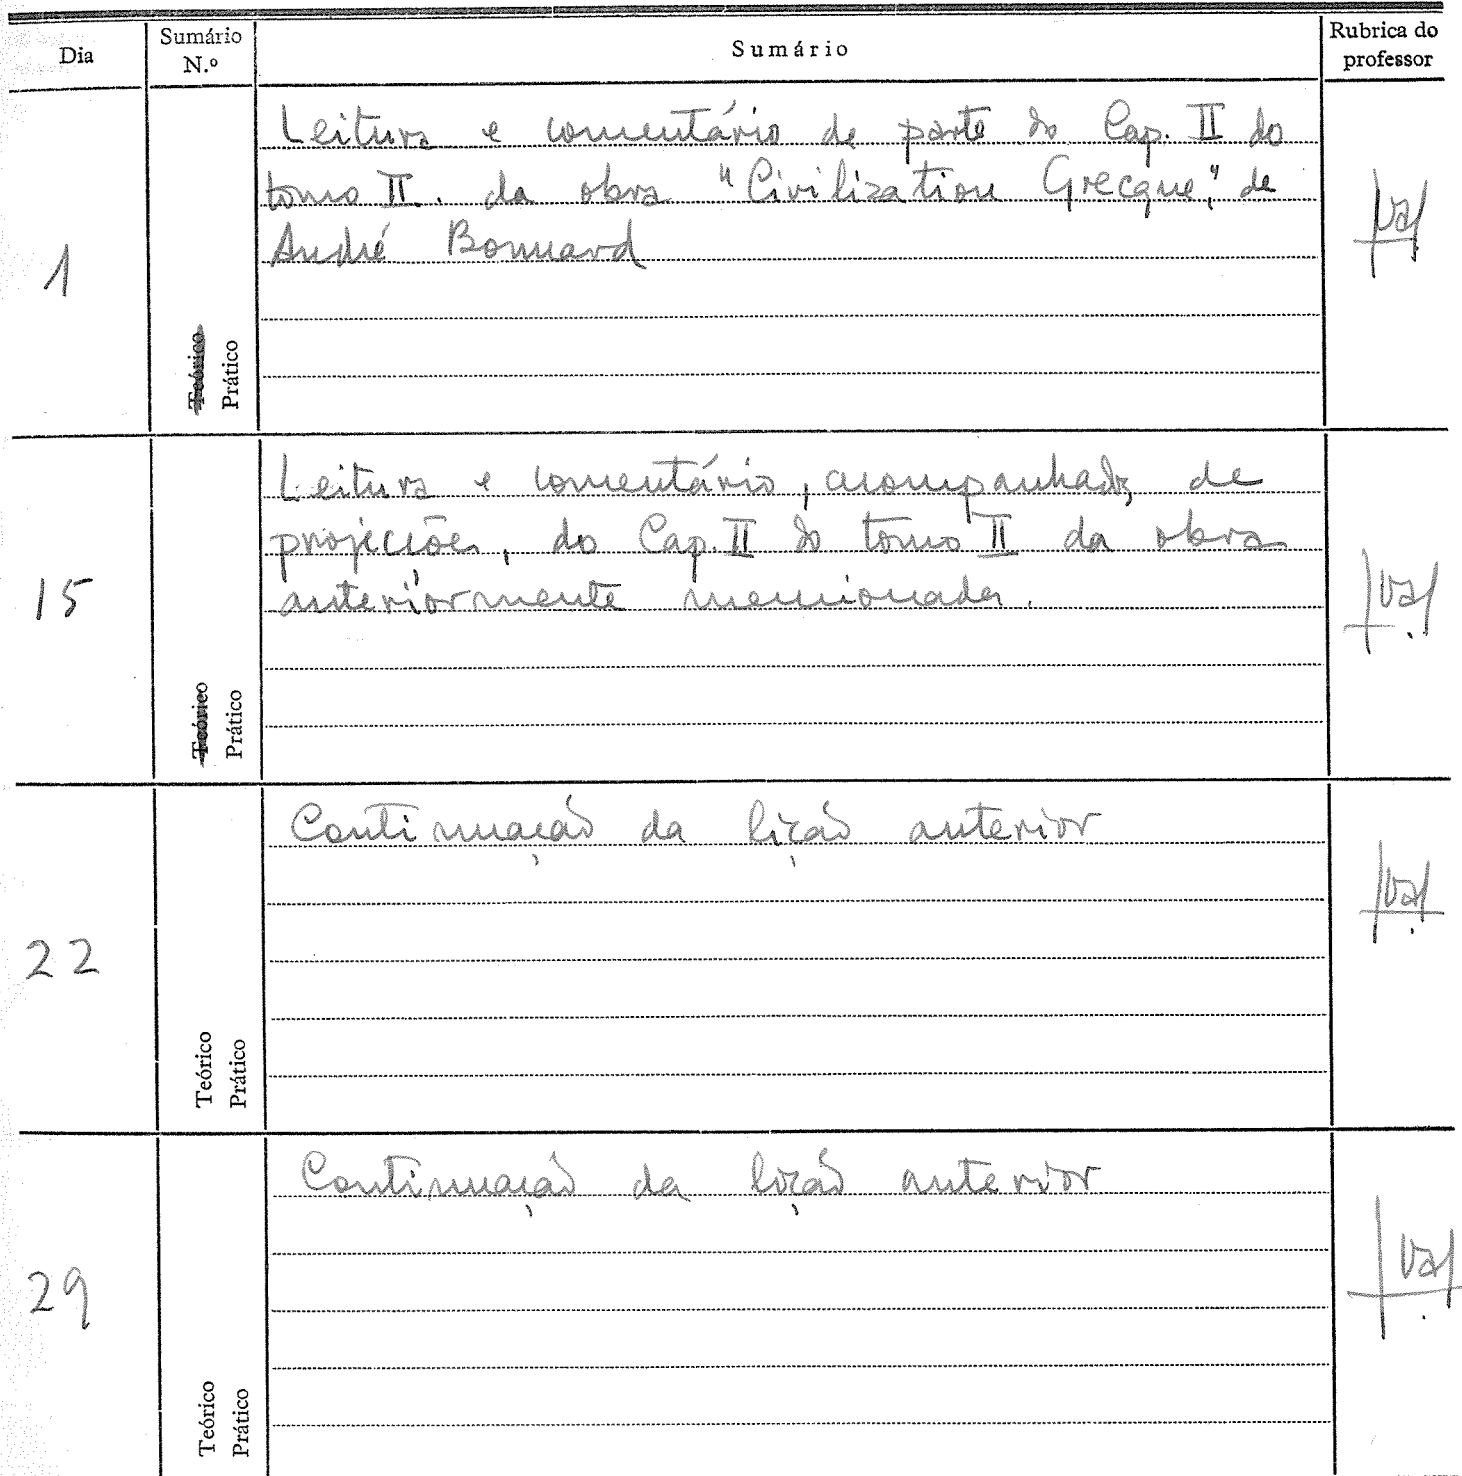 Dia
Sumário
N.º
Sumário
Rubrica do
professor
1
Teórico
Prático
Leitura e comentário de parte do Cap. II do
tomo II. da obra "Civilization Grecque", de
André Bonnard
15
Teórico
Prático
Leitura e comentário, acompanhado, de
projecções, do Cap. II do tomo II da obra
anteriormente mencionada.
22
Teórico
Prático
Continuação da lição anterior
29
Teórico
Prático
Continuação da lição anterior